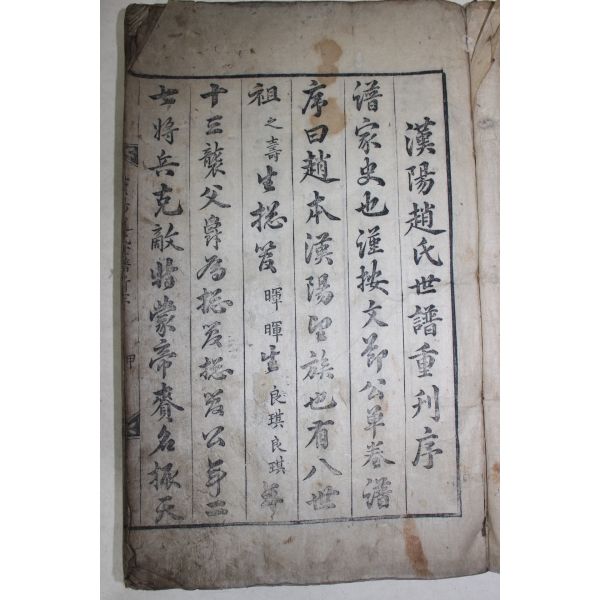 漢陽趙氏世譜重刊序
譜家史也謹按文節公單卷譜
序曰趙本漢陽望族也有八世
祖之壽生揔管暉暉生良琪良琪年
十三襲父爵為揔管揔管公年二
七將兵克敵特蒙帝賚名振天
甲